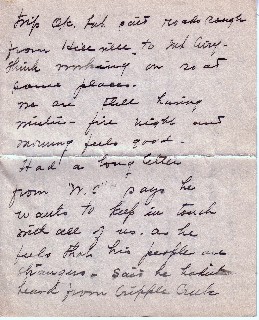 trip ok. but said roads rough
from Hillsville to Mt Airy-
think working on road
some places.
we are still having
winter - fire night and
morning feels good.
Had a long letter
from "W.S" says he
wants to keep in touch
with all of us. as he
feels that his people are
strangers - said he hadn't
heard from Cripple Creek